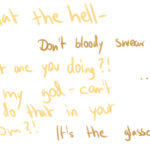 hat the hell-
Don't bloody swear
t are you doing?!
..
my god - can't
do that in your
om?!
It's the glasse